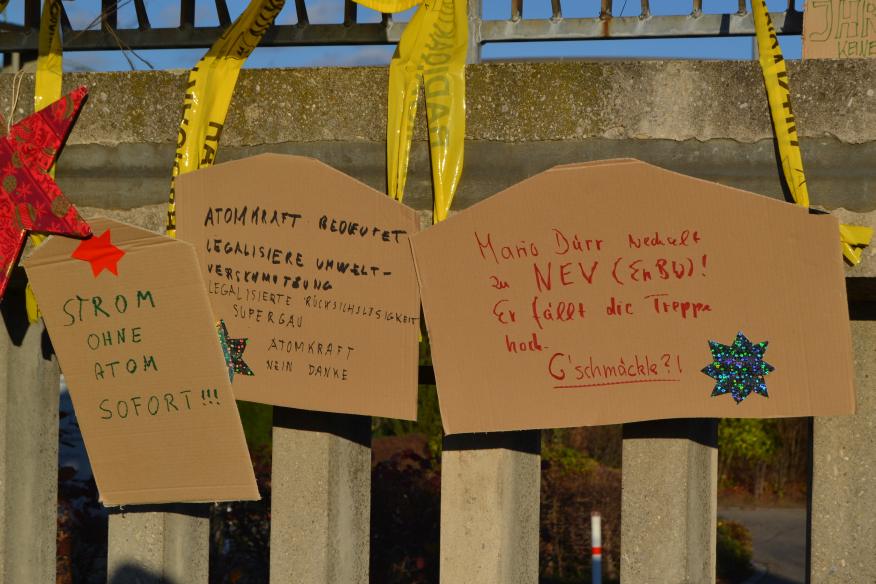 STROM
OHNE
ATOM
SOFORT!!!
ATOMKRAFT BEDEUTET
LEGALISIERE UMWELT-
VERSCHMUTZUNG
LEGALISIERTE RÜCKSICHSLOSIGKEIT
SUPERGAU
ATOMKRAFT
NEIN DANKE
Mario Dürr wechselt
zu NEV (EnBW)!
Er fällt die Treppe
hoch.
G'schmäckle?!
KEINE